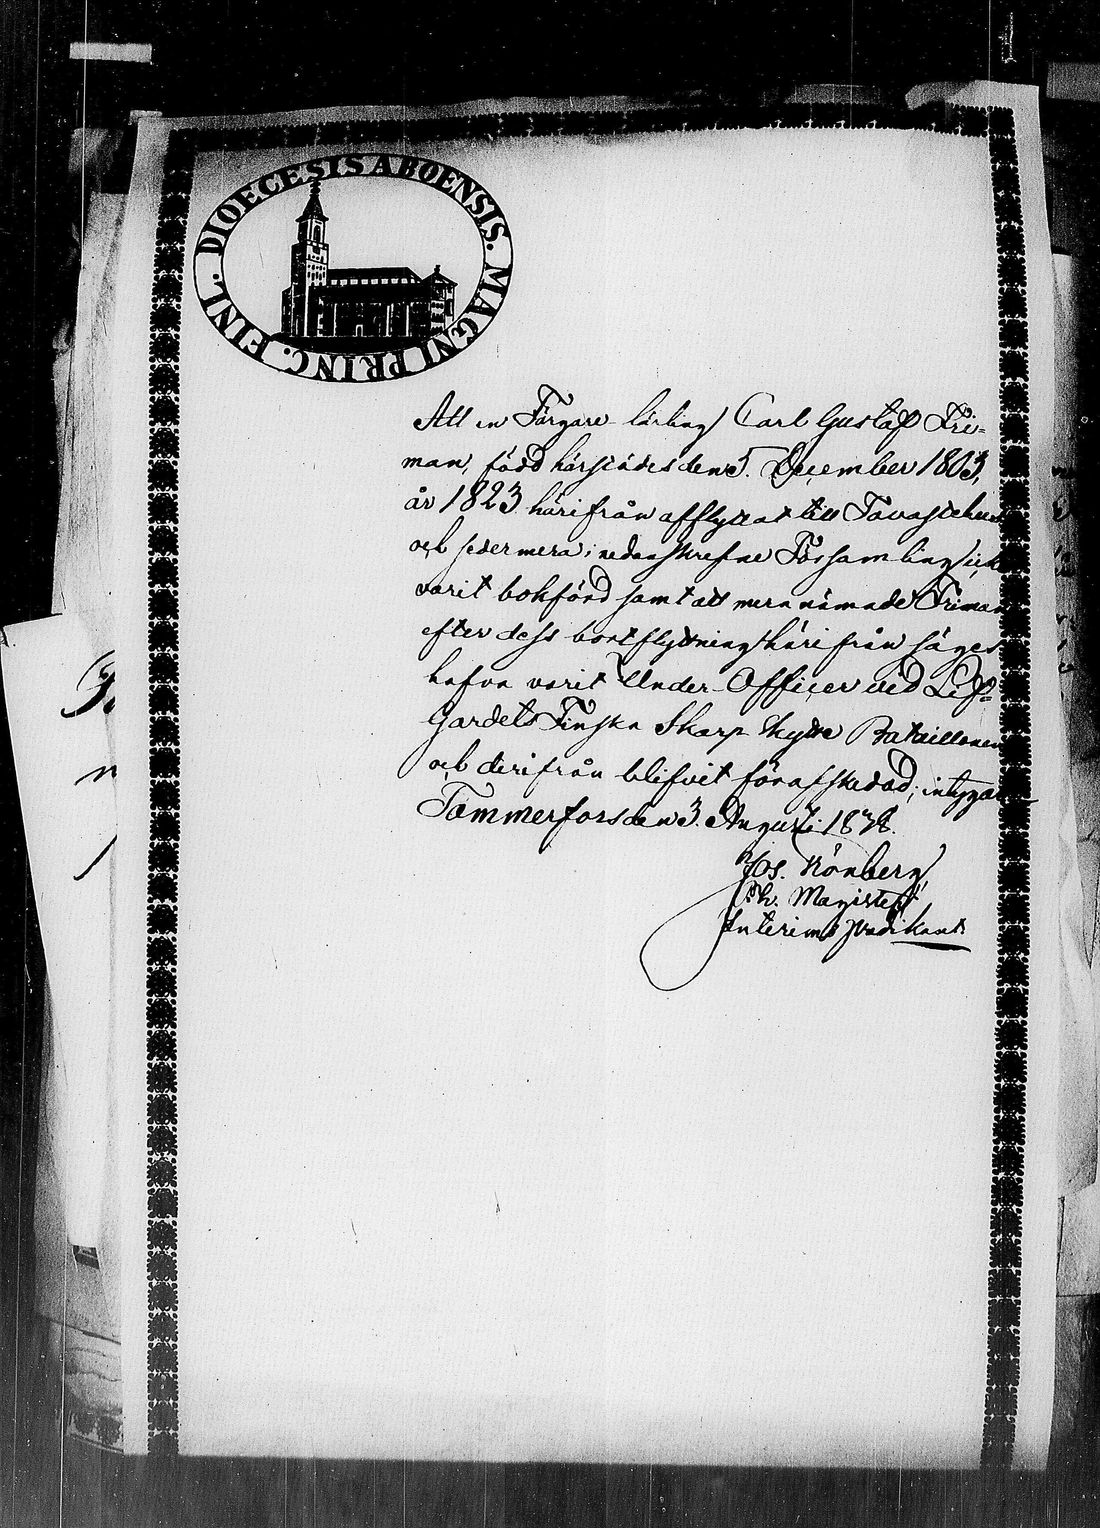 DIOECESIS ABOENSIS. MAGNI PRINC. FINL.
Att en Färgare lärling Carl Gustaf Fri-
man, född härstädes den 5. December 1803,
år 1823 härifrån afflyttat till Tavastehus
och sedermera i nedanskrefne Församling icke
varit bokförd samt att mera nämnade Friman
efter dess bortflyttning härifrån säges
hafva varit Under-Officer vid Lif-
Gardets Finska Skarp Skytte Bataillonen
och derifrån blifvit förafskedad; intygar
Tammerfors den 3. Augusti 1838.
Jos. Rönberg
Ph. Magister
Interims predikant